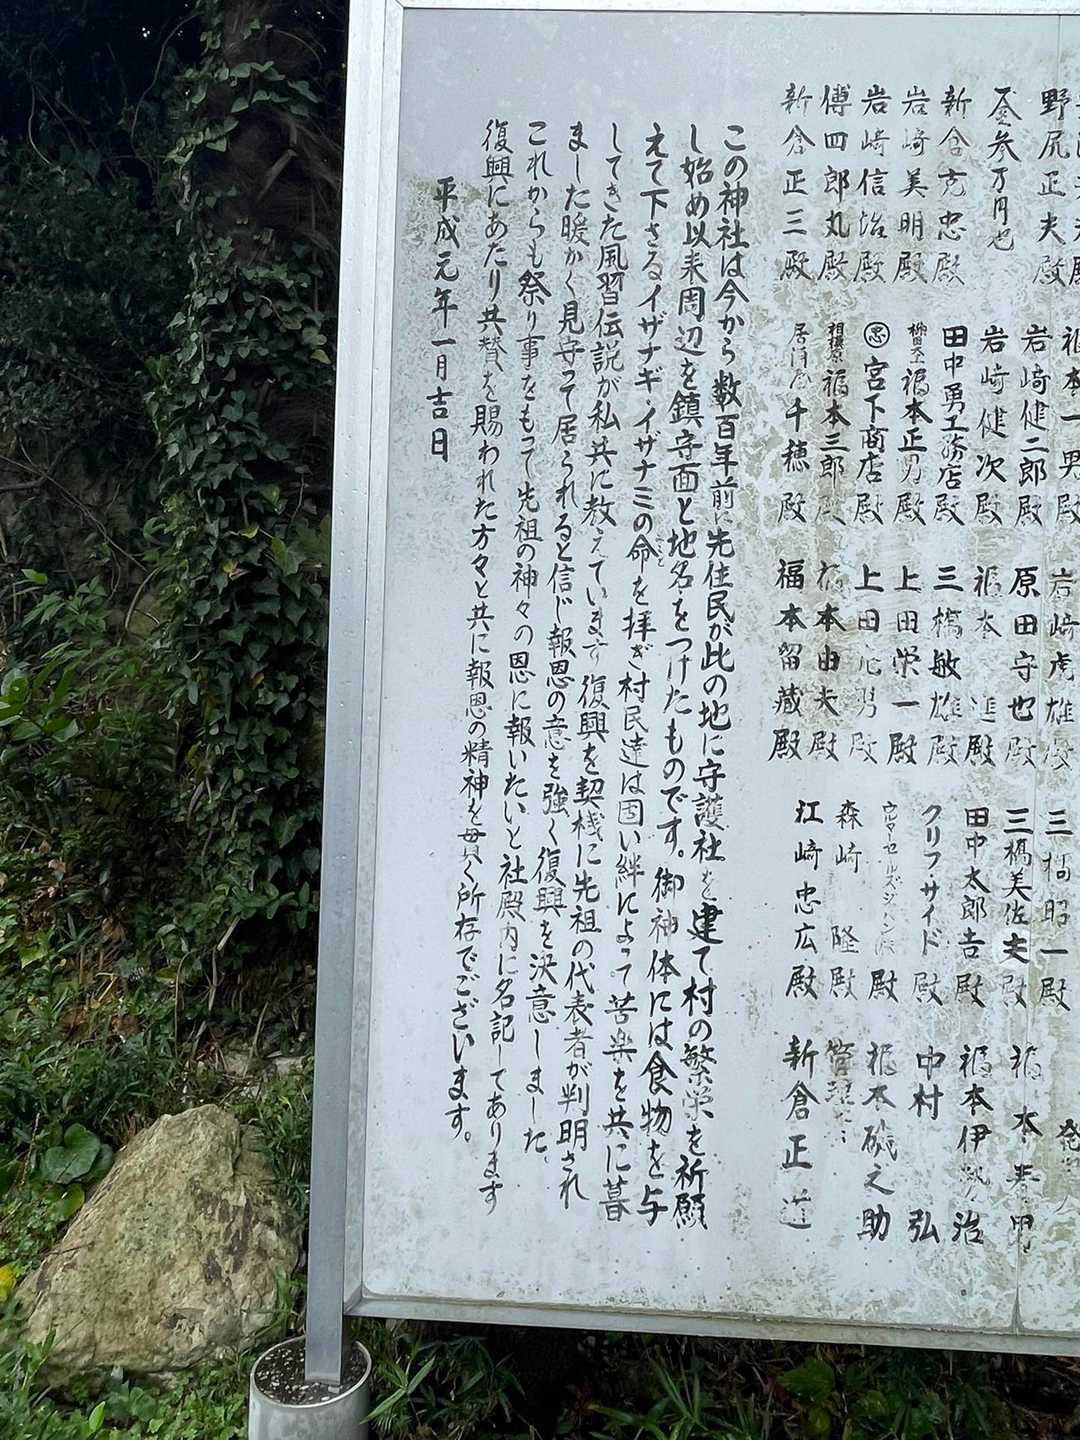 野尻正夫殿
金参万円也
新倉克忠殿
岩崎美明殿
岩崎信治殿
傳四郎丸殿
新倉正三殿
福本一男殿
岩崎健二郎殿
岩崎健次殿
田中勇工務店殿
福本正男殿
㊥宮下商店殿
相模原 福本三郎殿
千穂殿
岩崎虎雄殿
原田守也殿
福本 進殿
三橋敏雄殿
上田栄一殿
上田 男殿
福本由夫殿
福本留蔵殿
三橋昭一殿
三橋美佐夫殿
田中太郎吉殿
クリフ・サイド殿
殿
森崎 隆殿
江崎忠広殿
発 人
福本 男
福本伊 治
中村 弘
福本磯之助
管理
新倉正道
この神社は今から数百年前に先住民が此の地に守護社を建て村の繁栄を祈願
し始め以来周辺を鎮守面と地名をつけたものです。御神体には食物を与
えて下さるイザナギ・イザナミの命を拝ぎ村民達は固い絆によって苦楽を共に暮
してきた風習伝説が私共に教えています 復興を契桟に先祖の代表者が判明され
ました暖かく見守って居られると信じ報恩の意を強く復興を決意しました
これからも祭り事をもって先祖の神々の恩に報いたいと社殿内に名記してあります
復興にあたり共賛を賜われた方々と共に報恩の精神を貫く所存でございます。
平成元年一月吉日